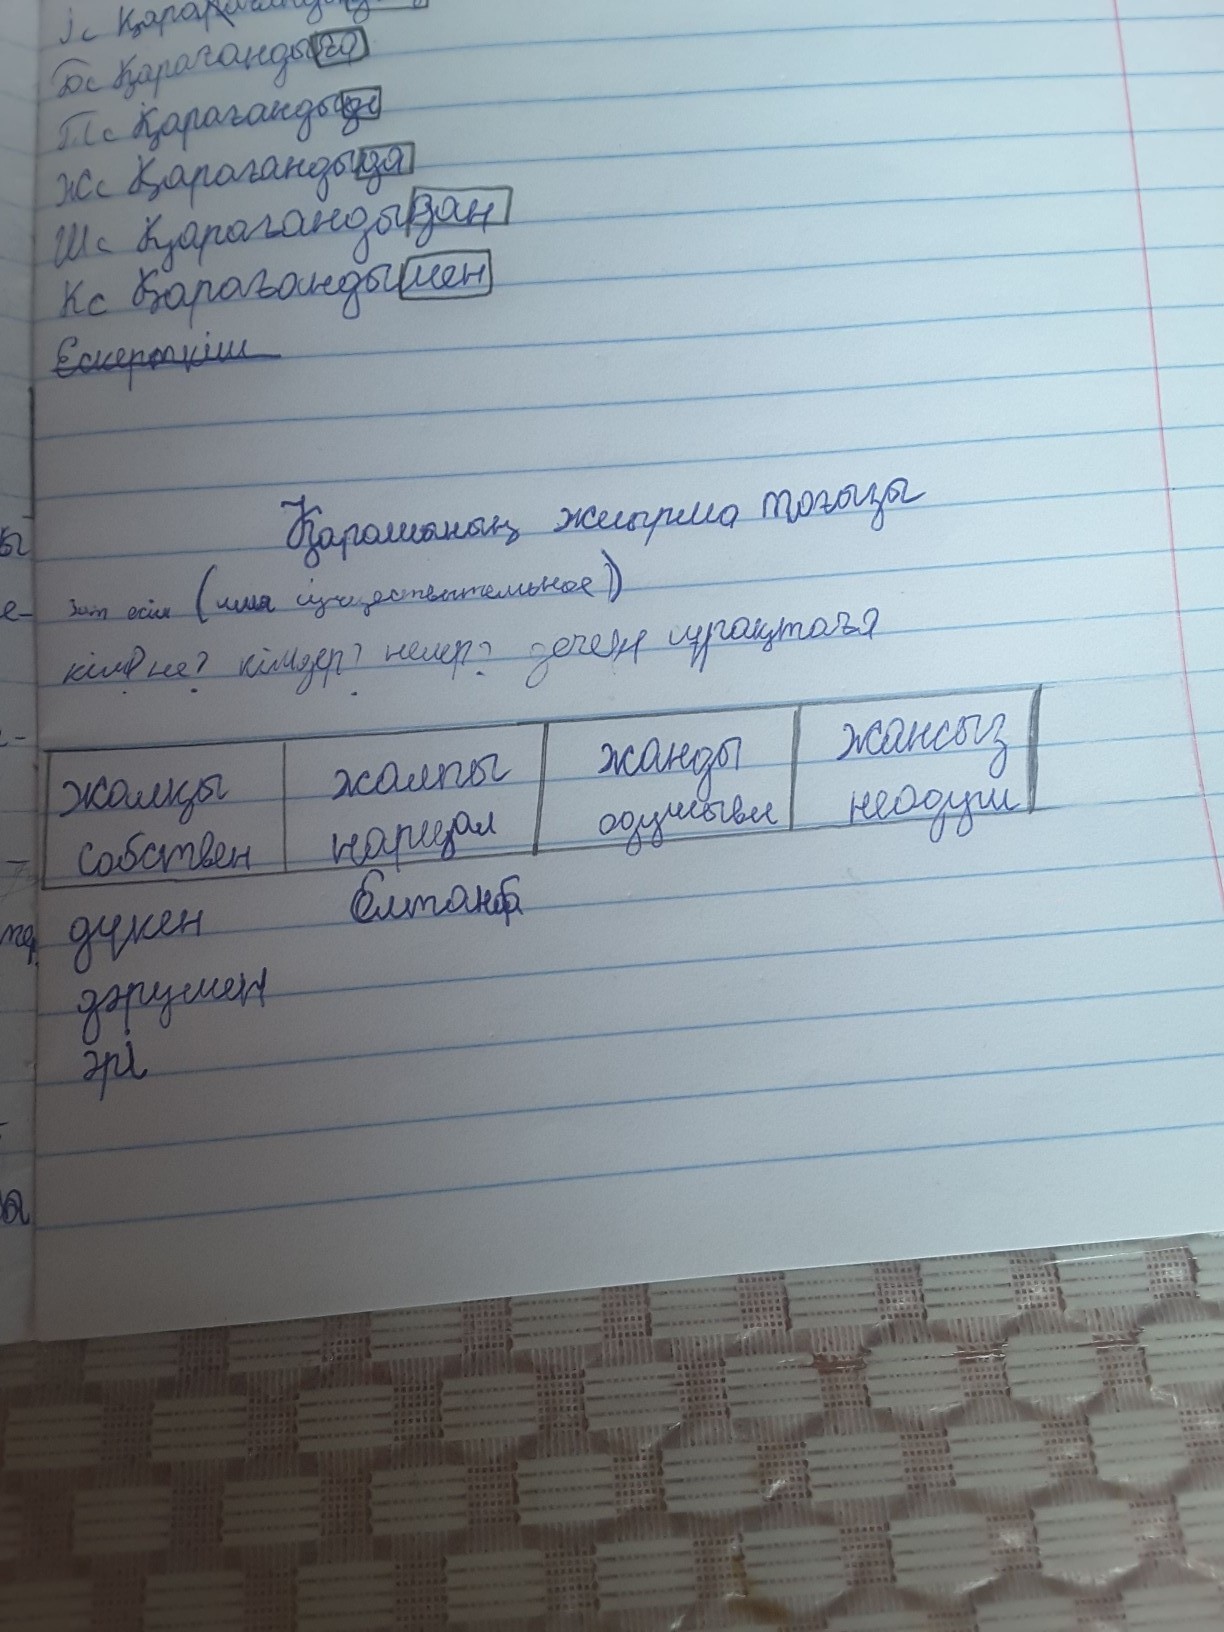 Бс Қарағандыға
Тс Қарағандыды
Жс Қарағандыда
Шс Қарағандыдан
Кс Қарағандымен
Ескерткіш
Қарашаның жиырма тоғызы
Зат есім (имя существительное)
кім? не? кімдер? нелер? деген сұрақтарға
жалқы жалпы жанды жансыз
собствен нарицал одушывле неодуш
дүкен Елтаңба
дәрумен
әрі